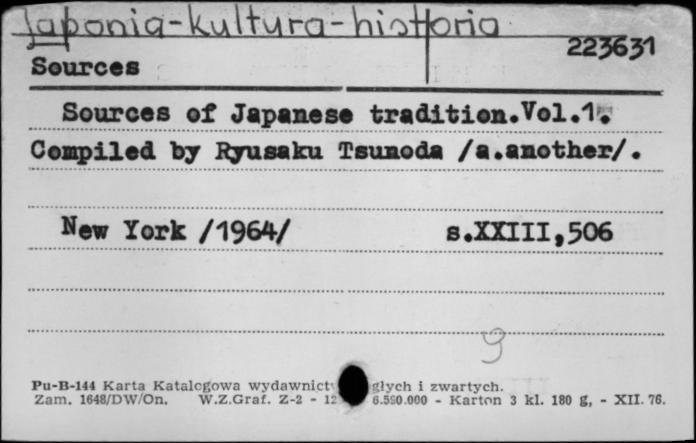 Japonia-kultura-historia
223631
Sources
Sources of Japanese tradition.Vol.1.
Compiled by Ryusaku Tsunoda /a.another/.
New York /1964/ s.XXIII,506
9
Pu-B-144 Karta Katalogowa wydawnict głych i zwartych.
Zam. 1648/DW/On. W.Z.Graf. Z-2 - 12 6.500.000 - Karton 3 kl. 180 g, - XII. 76.